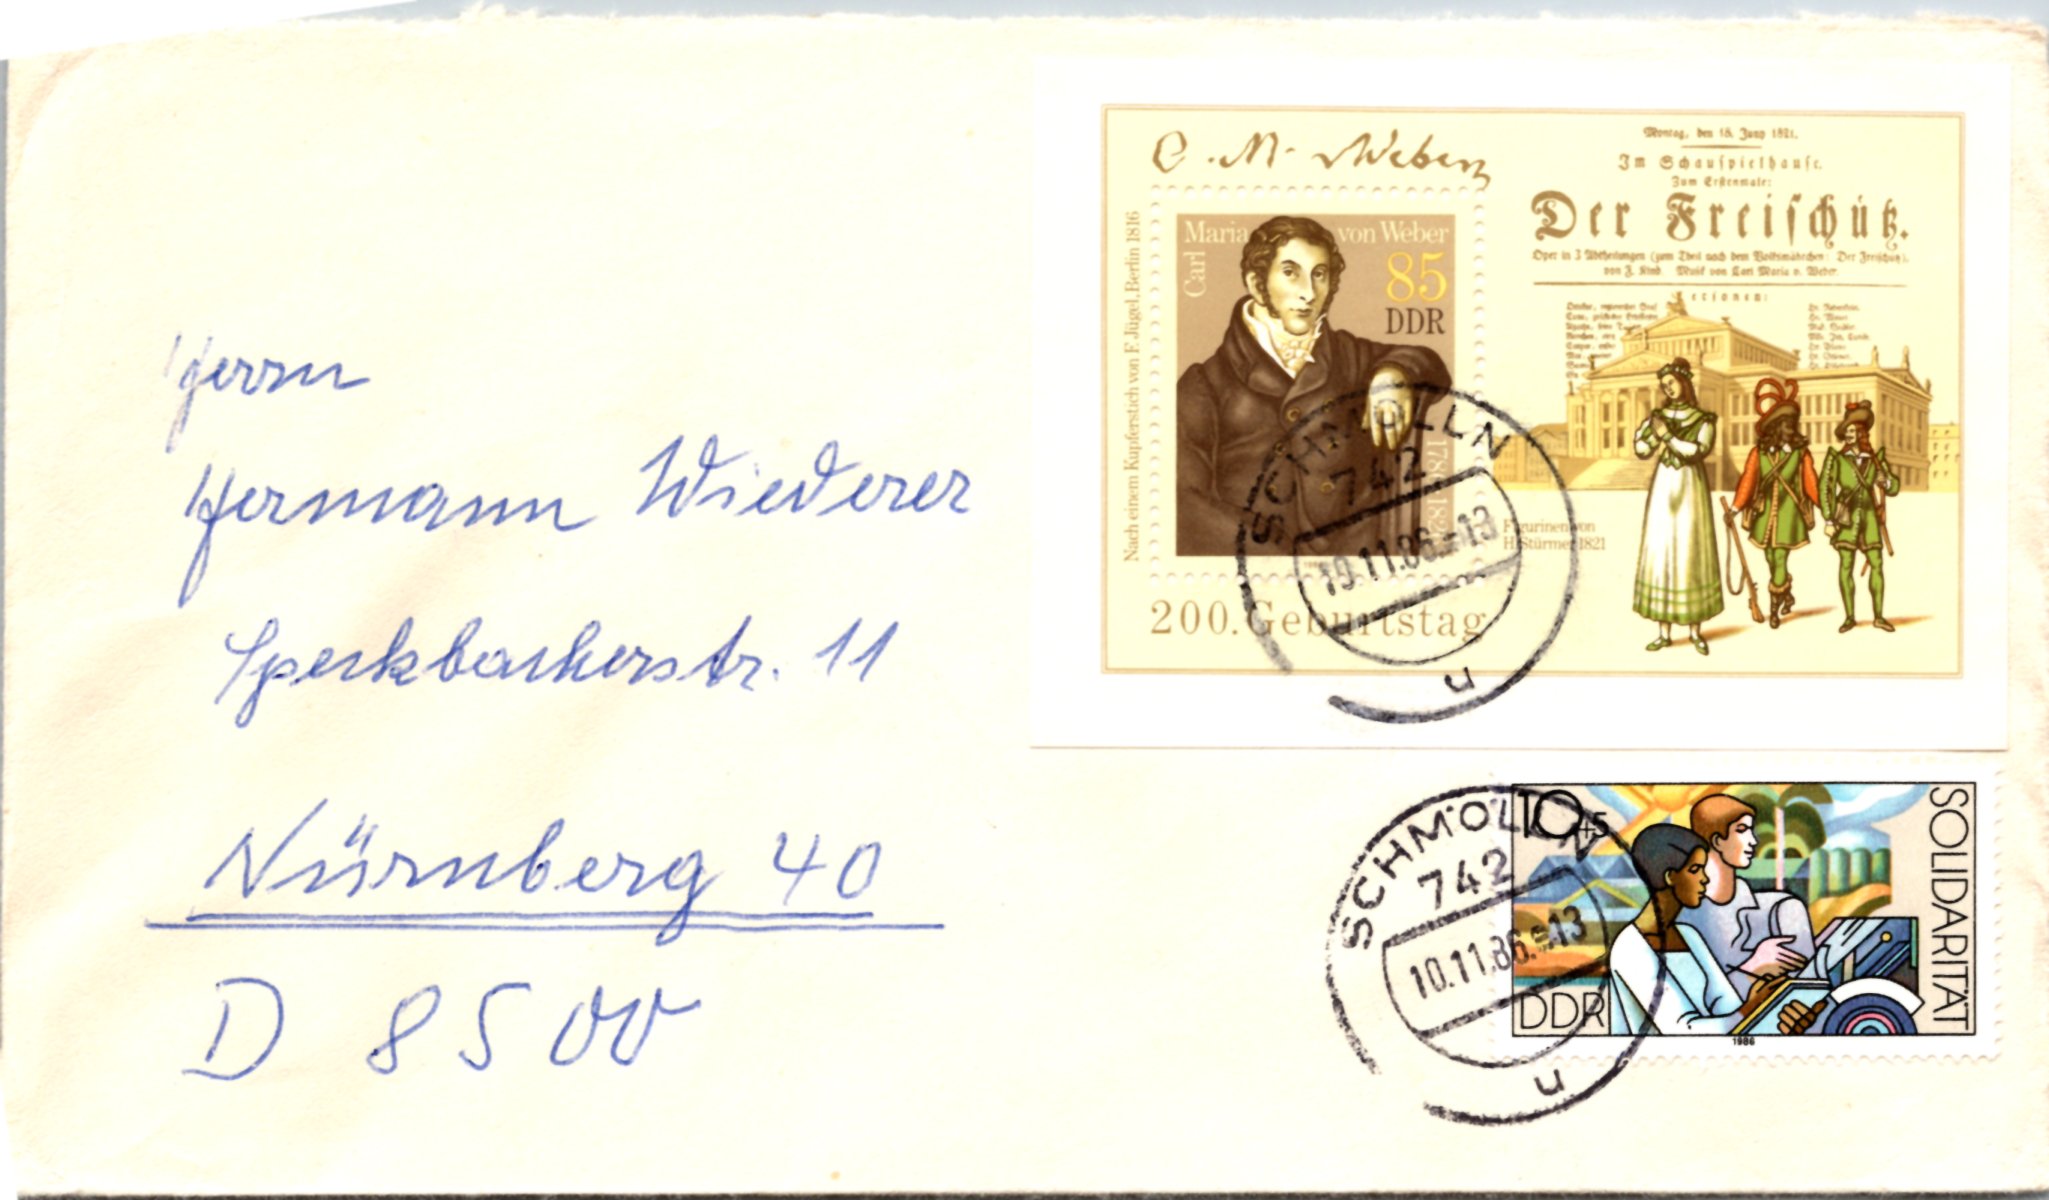 Herrn
Hermann Wiederer
Speckbacherstr. 11
Nürnberg 40
D 8500
C. M. v Weber
Nach einem Kupferstich von F. Jügel, Berlin 1816
Carl Maria von Weber
85
DDR
200. Geburtstag
Montag, den 18. Juny 1821.
Im Schauspielhause.
Zum Erstenmale:
Der Freischütz.
Oper in 3 Abtheilungen (zum Theil nach dem Volksmährchen: Der Freischütz),
von F. Kind. Musik von Carl Maria v. Weber.
Figurinen von
H. Stürmer 1821
SCHMÖLLN
742
10.11.86.-13
u
10+5
SOLIDARITÄT
DDR
1986
SCHMÖLLN
742
10.11.86.-13
u